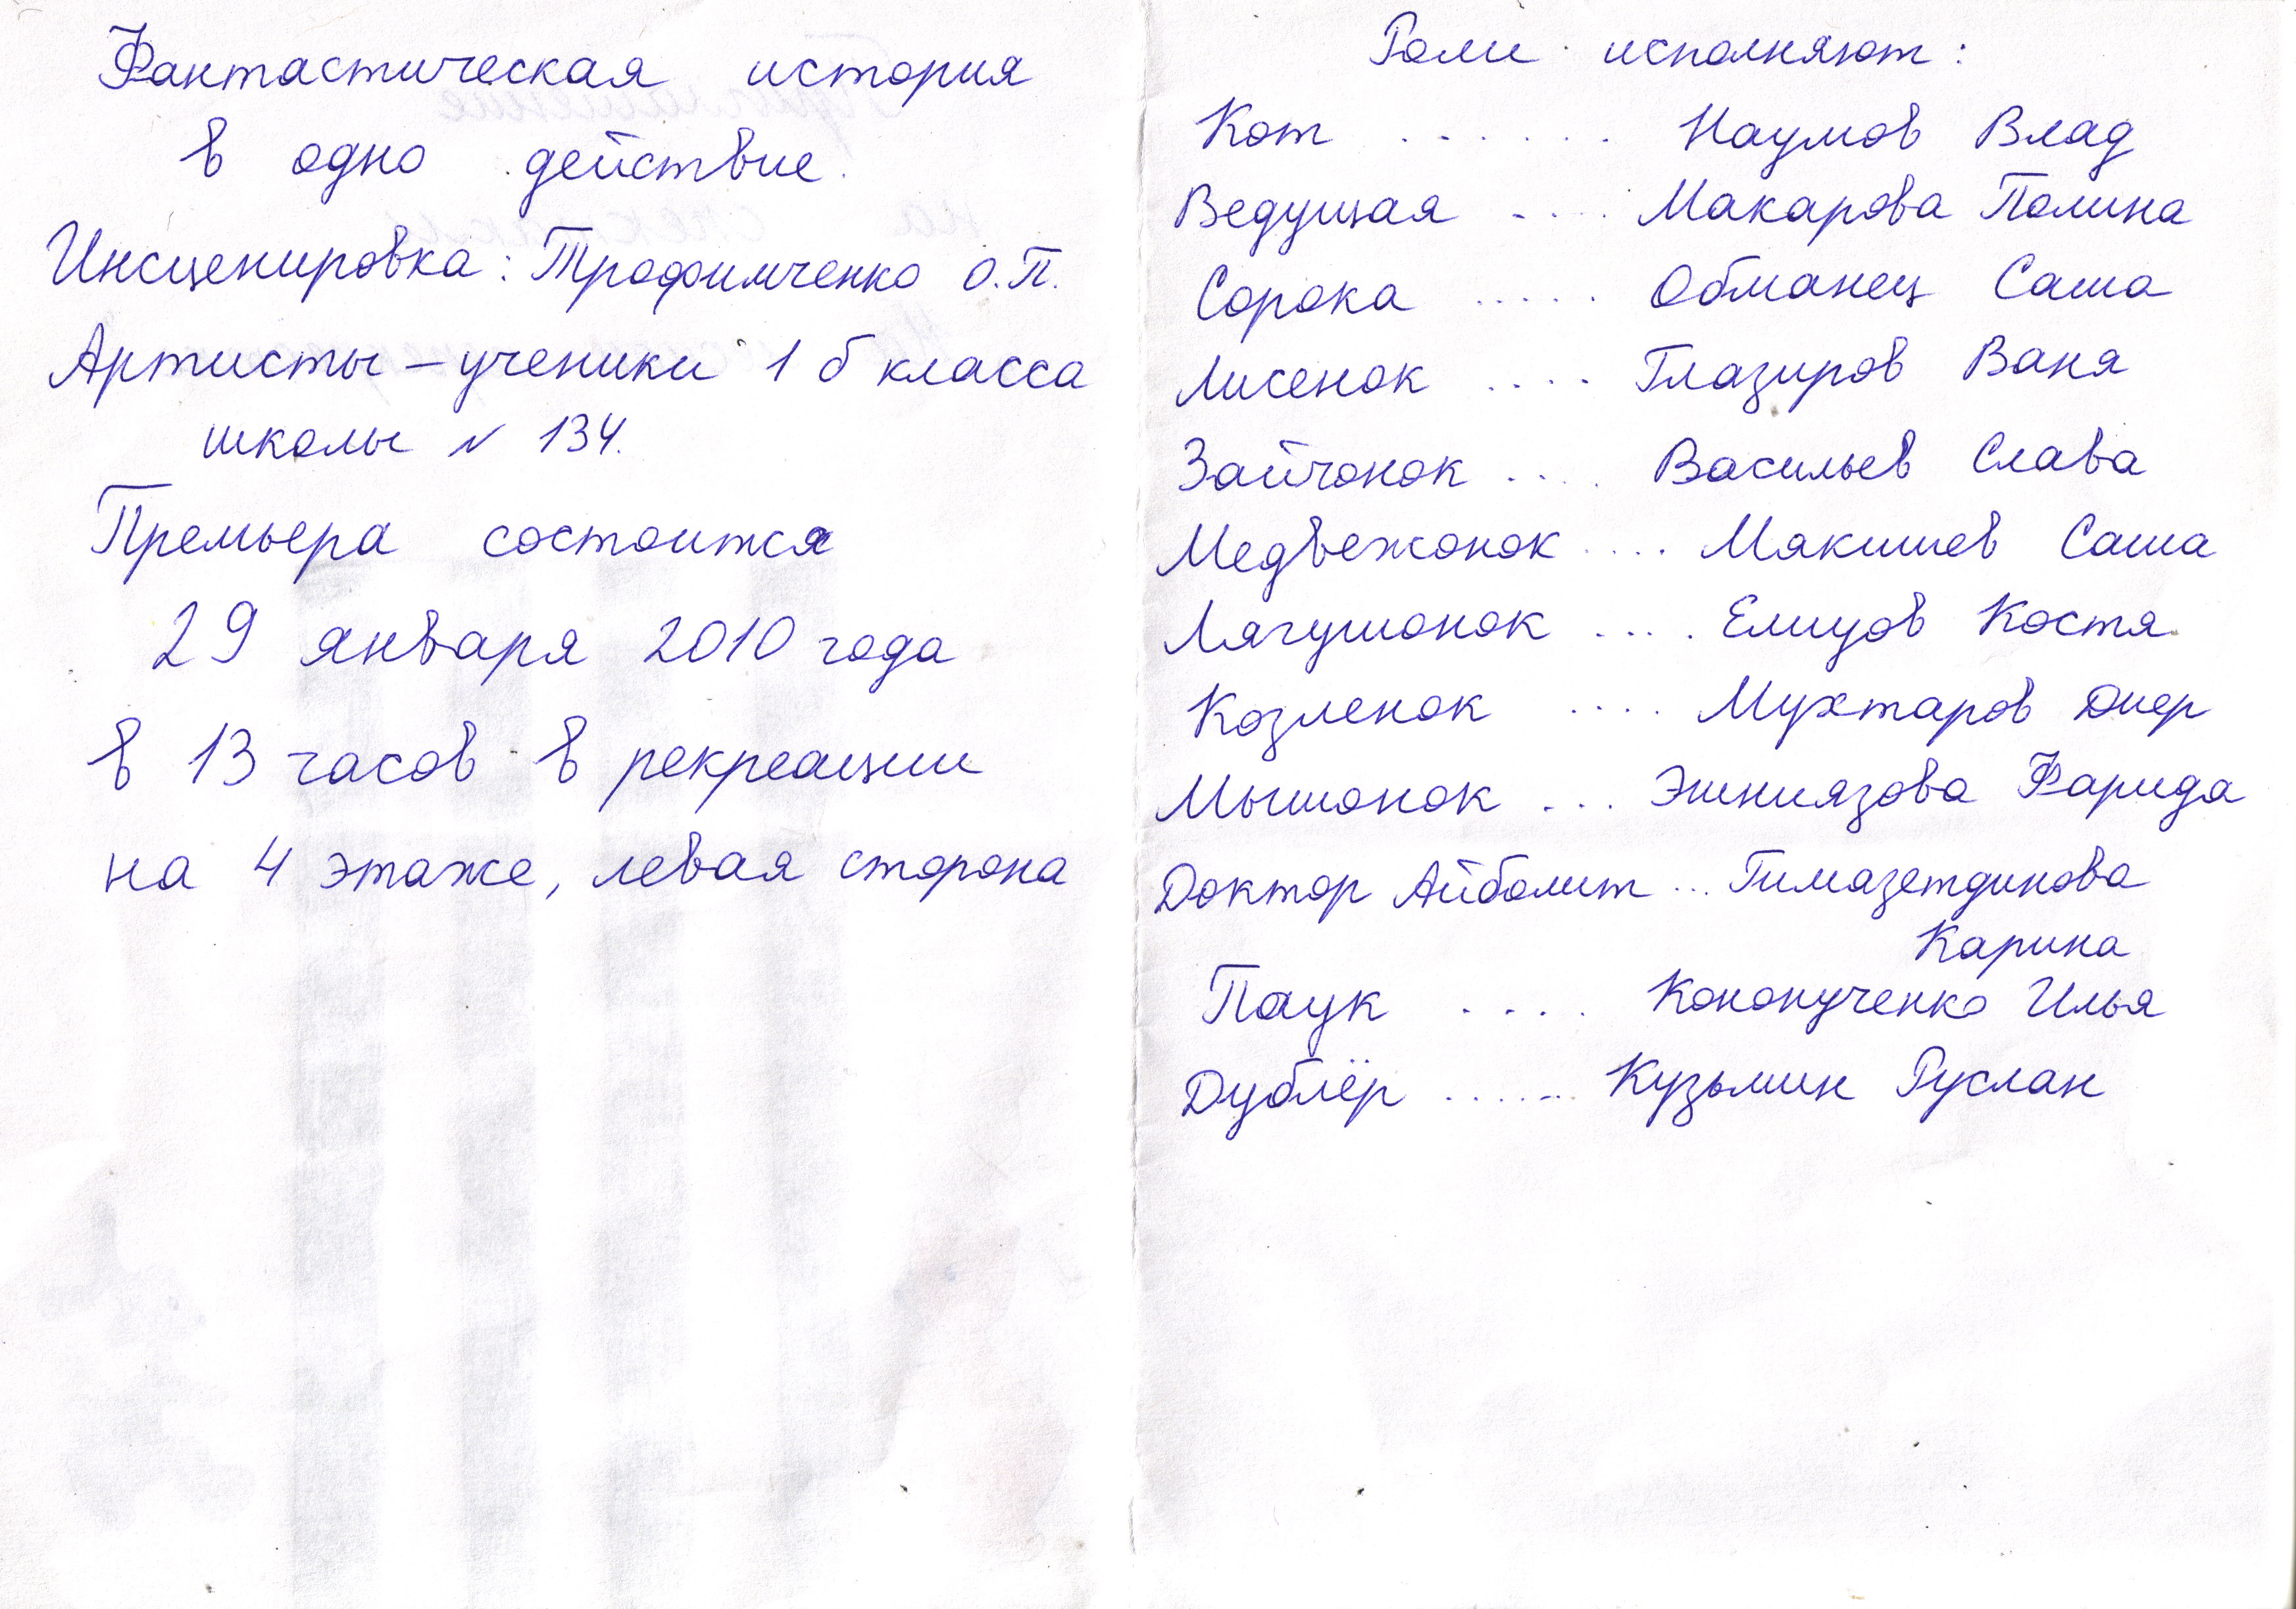 Фантастическая история
в одно действие.
Инсценировка: Трофимченко О.П.
Артисты – ученики 1 б класса
школы № 134.
Премьера состоится
29 января 2010 года
в 13 часов в рекреации
на 4 этаже, левая сторона
Роли исполняют:
Кот ...... Наумов Влад
Ведущая .... Макарова Полина
Сорока ..... Обманец Саша
Лисенок .... Глазиров Ваня
Зайчонок .... Васильев Слава
Медвежонок .... Мякишев Саша
Лягушонок .... Елизов Костя
Козленок .... Мухтаров Диер
Мышонок ... Эшниязова Фарида
Доктор Айболит ... Гимазетдинова
Карина
Паук .... Кононученко Илья
Дублёр ...... Кузьмин Руслан